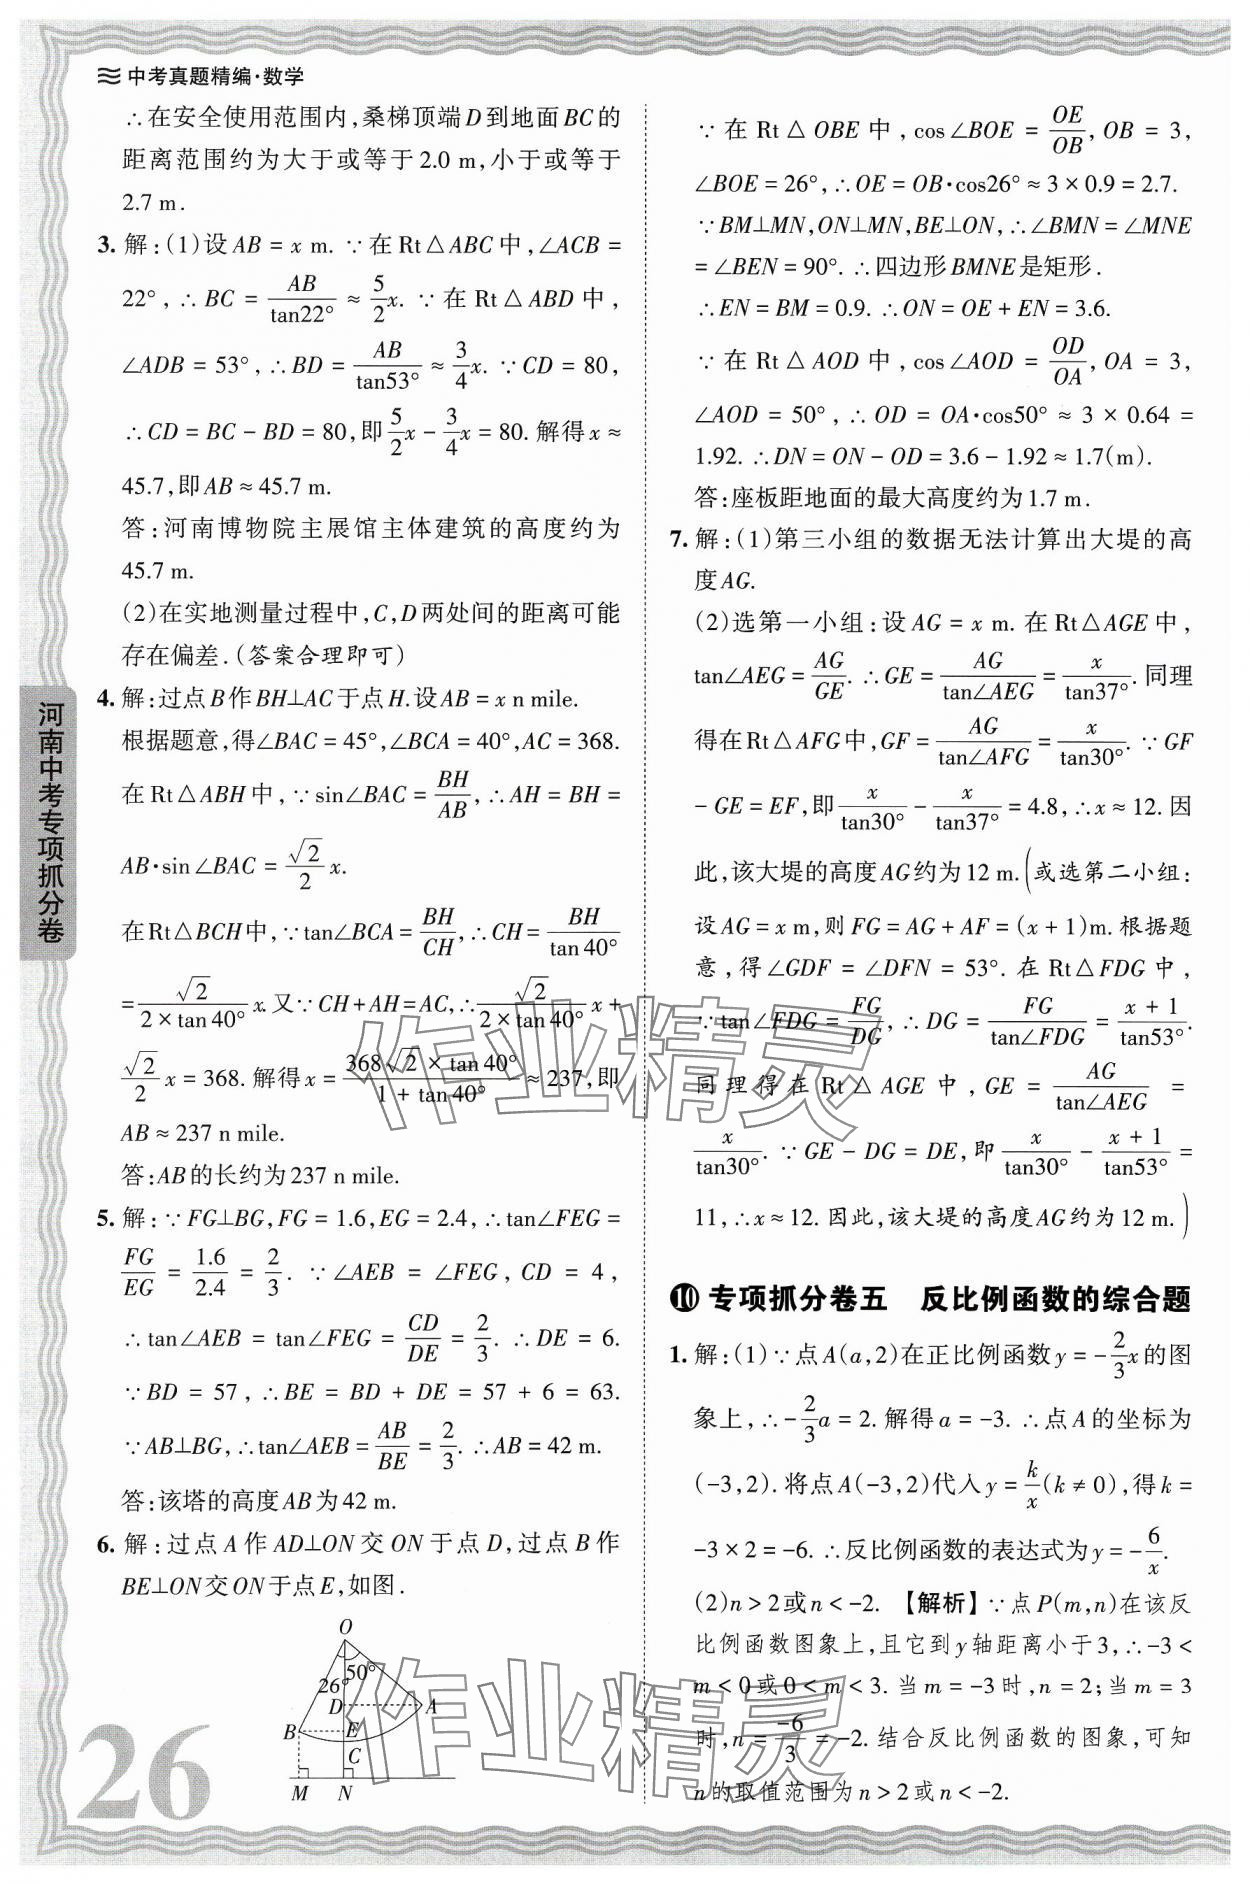 中考真题精编·数学
∴在安全使用范围内,桑梯顶端D到地面BC的
距离范围约为大于或等于2.0 m,小于或等于
2.7 m.
3. 解:(1)设AB = x m. ∵在Rt△ABC中,∠ACB =
22°, ∴BC = AB/tan22° ≈ 5/2 x. ∵在Rt△ABD中,
∠ADB = 53°, ∴BD = AB/tan53° ≈ 3/4 x. ∵CD = 80,
∴CD = BC - BD = 80,即 5/2 x - 3/4 x = 80. 解得x ≈
45.7,即AB ≈ 45.7 m.
答:河南博物院主展馆主体建筑的高度约为
45.7 m.
(2)在实地测量过程中,C,D两处间的距离可能
存在偏差.(答案合理即可)
4. 解:过点B作BH⊥AC于点H.设AB = x n mile.
根据题意,得∠BAC = 45°,∠BCA = 40°,AC = 368.
在Rt△ABH中,∵sin∠BAC = BH/AB, ∴AH = BH =
AB·sin∠BAC = √2/2 x.
在Rt△BCH中,∵tan∠BCA = BH/CH, ∴CH = BH/tan 40°
= √2/(2×tan 40°) x. 又∵CH + AH = AC, ∴ √2/(2×tan 40°) x +
√2/2 x = 368. 解得x = (368√2 × tan 40°)/(1 + tan 40°) ≈ 237,即
AB ≈ 237 n mile.
答:AB的长约为237 n mile.
5. 解:∵FG⊥BG,FG = 1.6,EG = 2.4, ∴tan∠FEG =
FG/EG = 1.6/2.4 = 2/3. ∵∠AEB = ∠FEG, CD = 4,
∴tan∠AEB = tan∠FEG = CD/DE = 2/3. ∴DE = 6.
∵BD = 57, ∴BE = BD + DE = 57 + 6 = 63.
∵AB⊥BG, ∴tan∠AEB = AB/BE = 2/3. ∴AB = 42 m.
答:该塔的高度AB为42 m.
6. 解:过点A作AD⊥ON交ON于点D,过点B作
BE⊥ON交ON于点E,如图.
O
50°
26°
D
A
B
E
C
M N
∵在Rt△OBE中, cos∠BOE = OE/OB, OB = 3,
∠BOE = 26°, ∴OE = OB·cos26° ≈ 3 × 0.9 = 2.7.
∵BM⊥MN,ON⊥MN,BE⊥ON, ∴∠BMN = ∠MNE
= ∠BEN = 90°. ∴四边形BMNE是矩形.
∴EN = BM = 0.9. ∴ON = OE + EN = 3.6.
∵在Rt△AOD中, cos∠AOD = OD/OA, OA = 3,
∠AOD = 50°, ∴OD = OA·cos50° ≈ 3 × 0.64 =
1.92. ∴DN = ON - OD = 3.6 - 1.92 ≈ 1.7(m).
答:座板距地面的最大高度约为1.7 m.
7. 解:(1)第三小组的数据无法计算出大堤的高
度AG.
(2)选第一小组:设AG = x m. 在Rt△AGE中,
tan∠AEG = AG/GE. ∴GE = AG/tan∠AEG = x/tan37°. 同理
得在Rt△AFG中,GF = AG/tan∠AFG = x/tan30°. ∵GF
- GE = EF,即 x/tan30° - x/tan37° = 4.8, ∴x ≈ 12. 因
此,该大堤的高度AG约为12 m. (或选第二小组:
设AG = x m,则FG = AG + AF = (x + 1)m. 根据题
意,得∠GDF = ∠DFN = 53°. 在Rt△FDG中,
∵tan∠FDG = FG/DG, ∴DG = FG/tan∠FDG = (x + 1)/tan53°.
同理得在Rt△AGE中, GE = AG/tan∠AEG =
x/tan30°. ∵GE - DG = DE,即 x/tan30° - (x + 1)/tan53° =
11, ∴x ≈ 12. 因此,该大堤的高度AG约为12 m.)
⑩ 专项抓分卷五 反比例函数的综合题
1. 解:(1)∵点A(a,2)在正比例函数y = -2/3 x的图
象上, ∴-2/3 a = 2. 解得a = -3. ∴点A的坐标为
(-3,2). 将点A(-3,2)代入y = k/x (k ≠ 0),得k =
-3 × 2 = -6. ∴反比例函数的表达式为y = -6/x.
(2)n > 2或n < -2. 【解析】∵点P(m,n)在该反
比例函数图象上,且它到y轴距离小于3, ∴-3 <
m < 0或0 < m < 3. 当m = -3时,n = 2;当m = 3
时,n = -6/3 = -2. 结合反比例函数的图象,可知
n的取值范围为n > 2或n < -2.
河南中考专项抓分卷
26
作业精灵
作业精灵